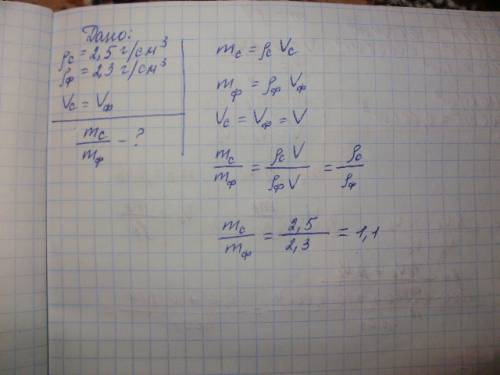 Дано:
ρс = 2,5 г/см³
ρф = 2,3 г/см³
Vс = Vф
mс/mф - ?
mс = ρс Vс
mф = ρф Vф
Vс = Vф = V
mс/mф = ρс V/ρф V = ρс/ρф
mс/mф = 2,5/2,3 = 1,1